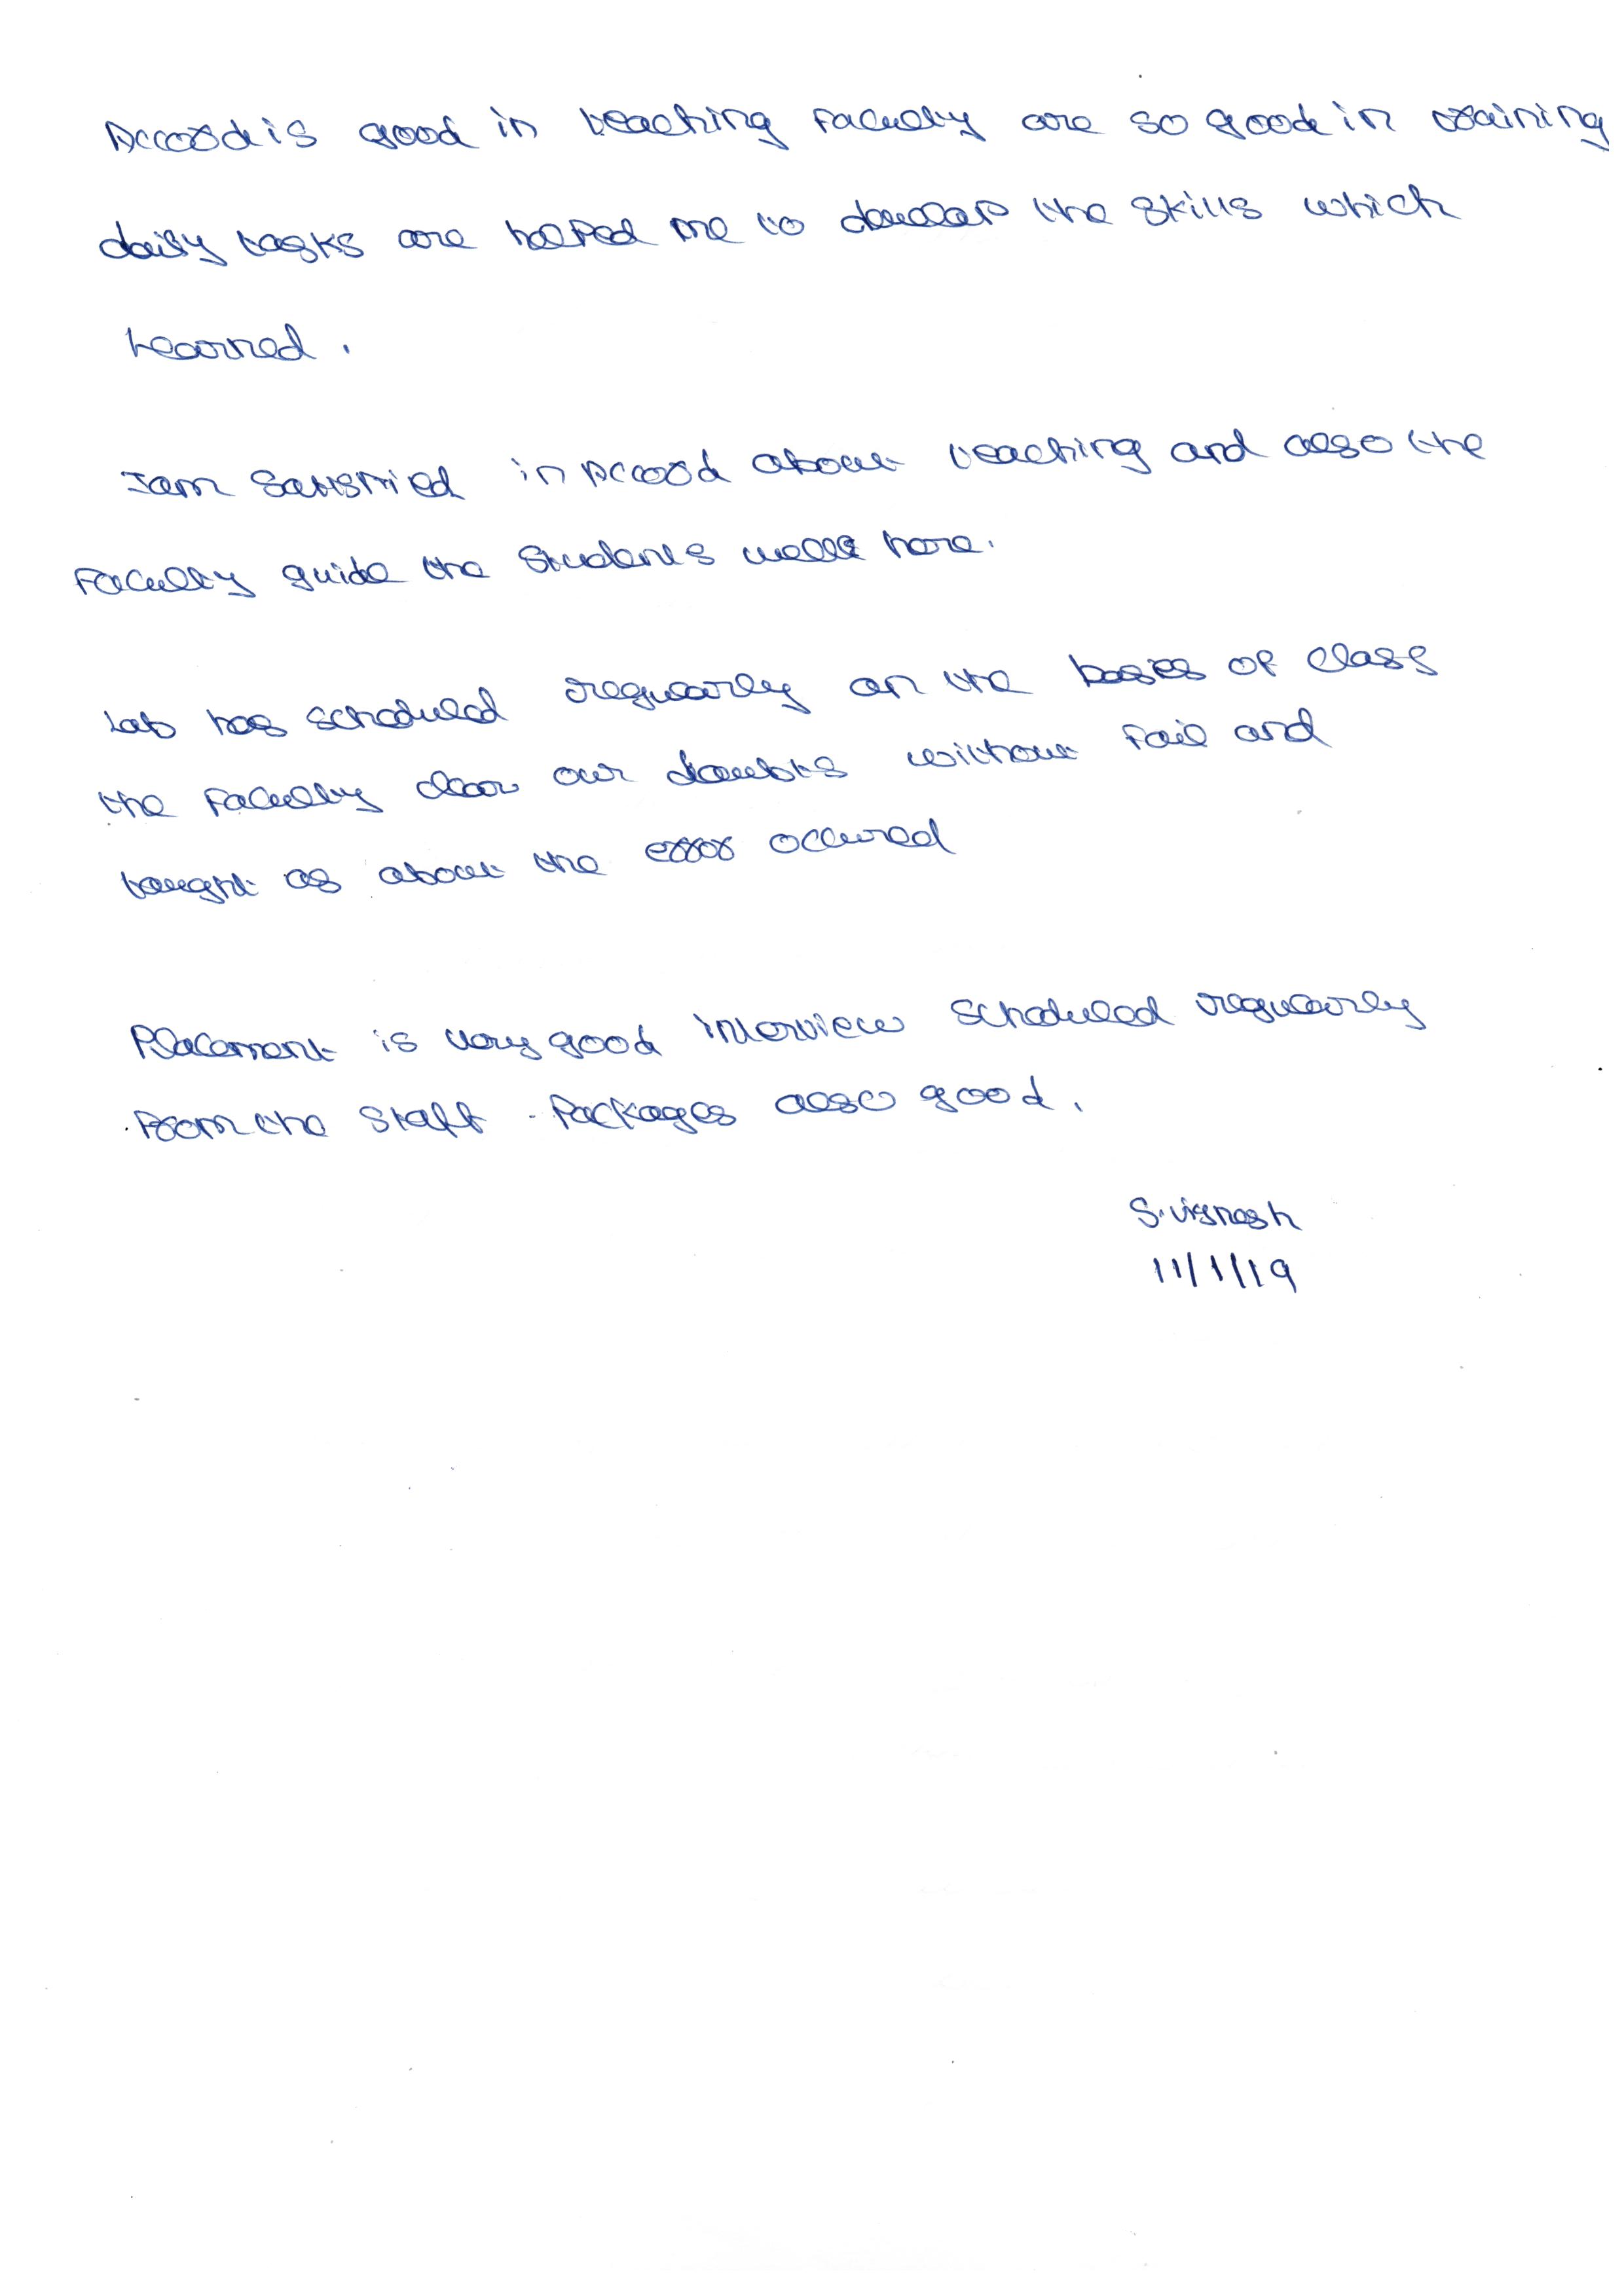 Accord is good in teaching Faculty are so good in training
daily tasks are helped me to develop the skills which
learned.
I am Satisfied in Accord about teaching and also the
Faculty guide the Students well here.
Lab has scheduled regularly on the basics of class
the Faculty clear our doubts without fail and
taught as about the error occured
Placement is very good Interview Scheduled regularly
From the Staff. Packages also good.
S. vignesh
11/1/19